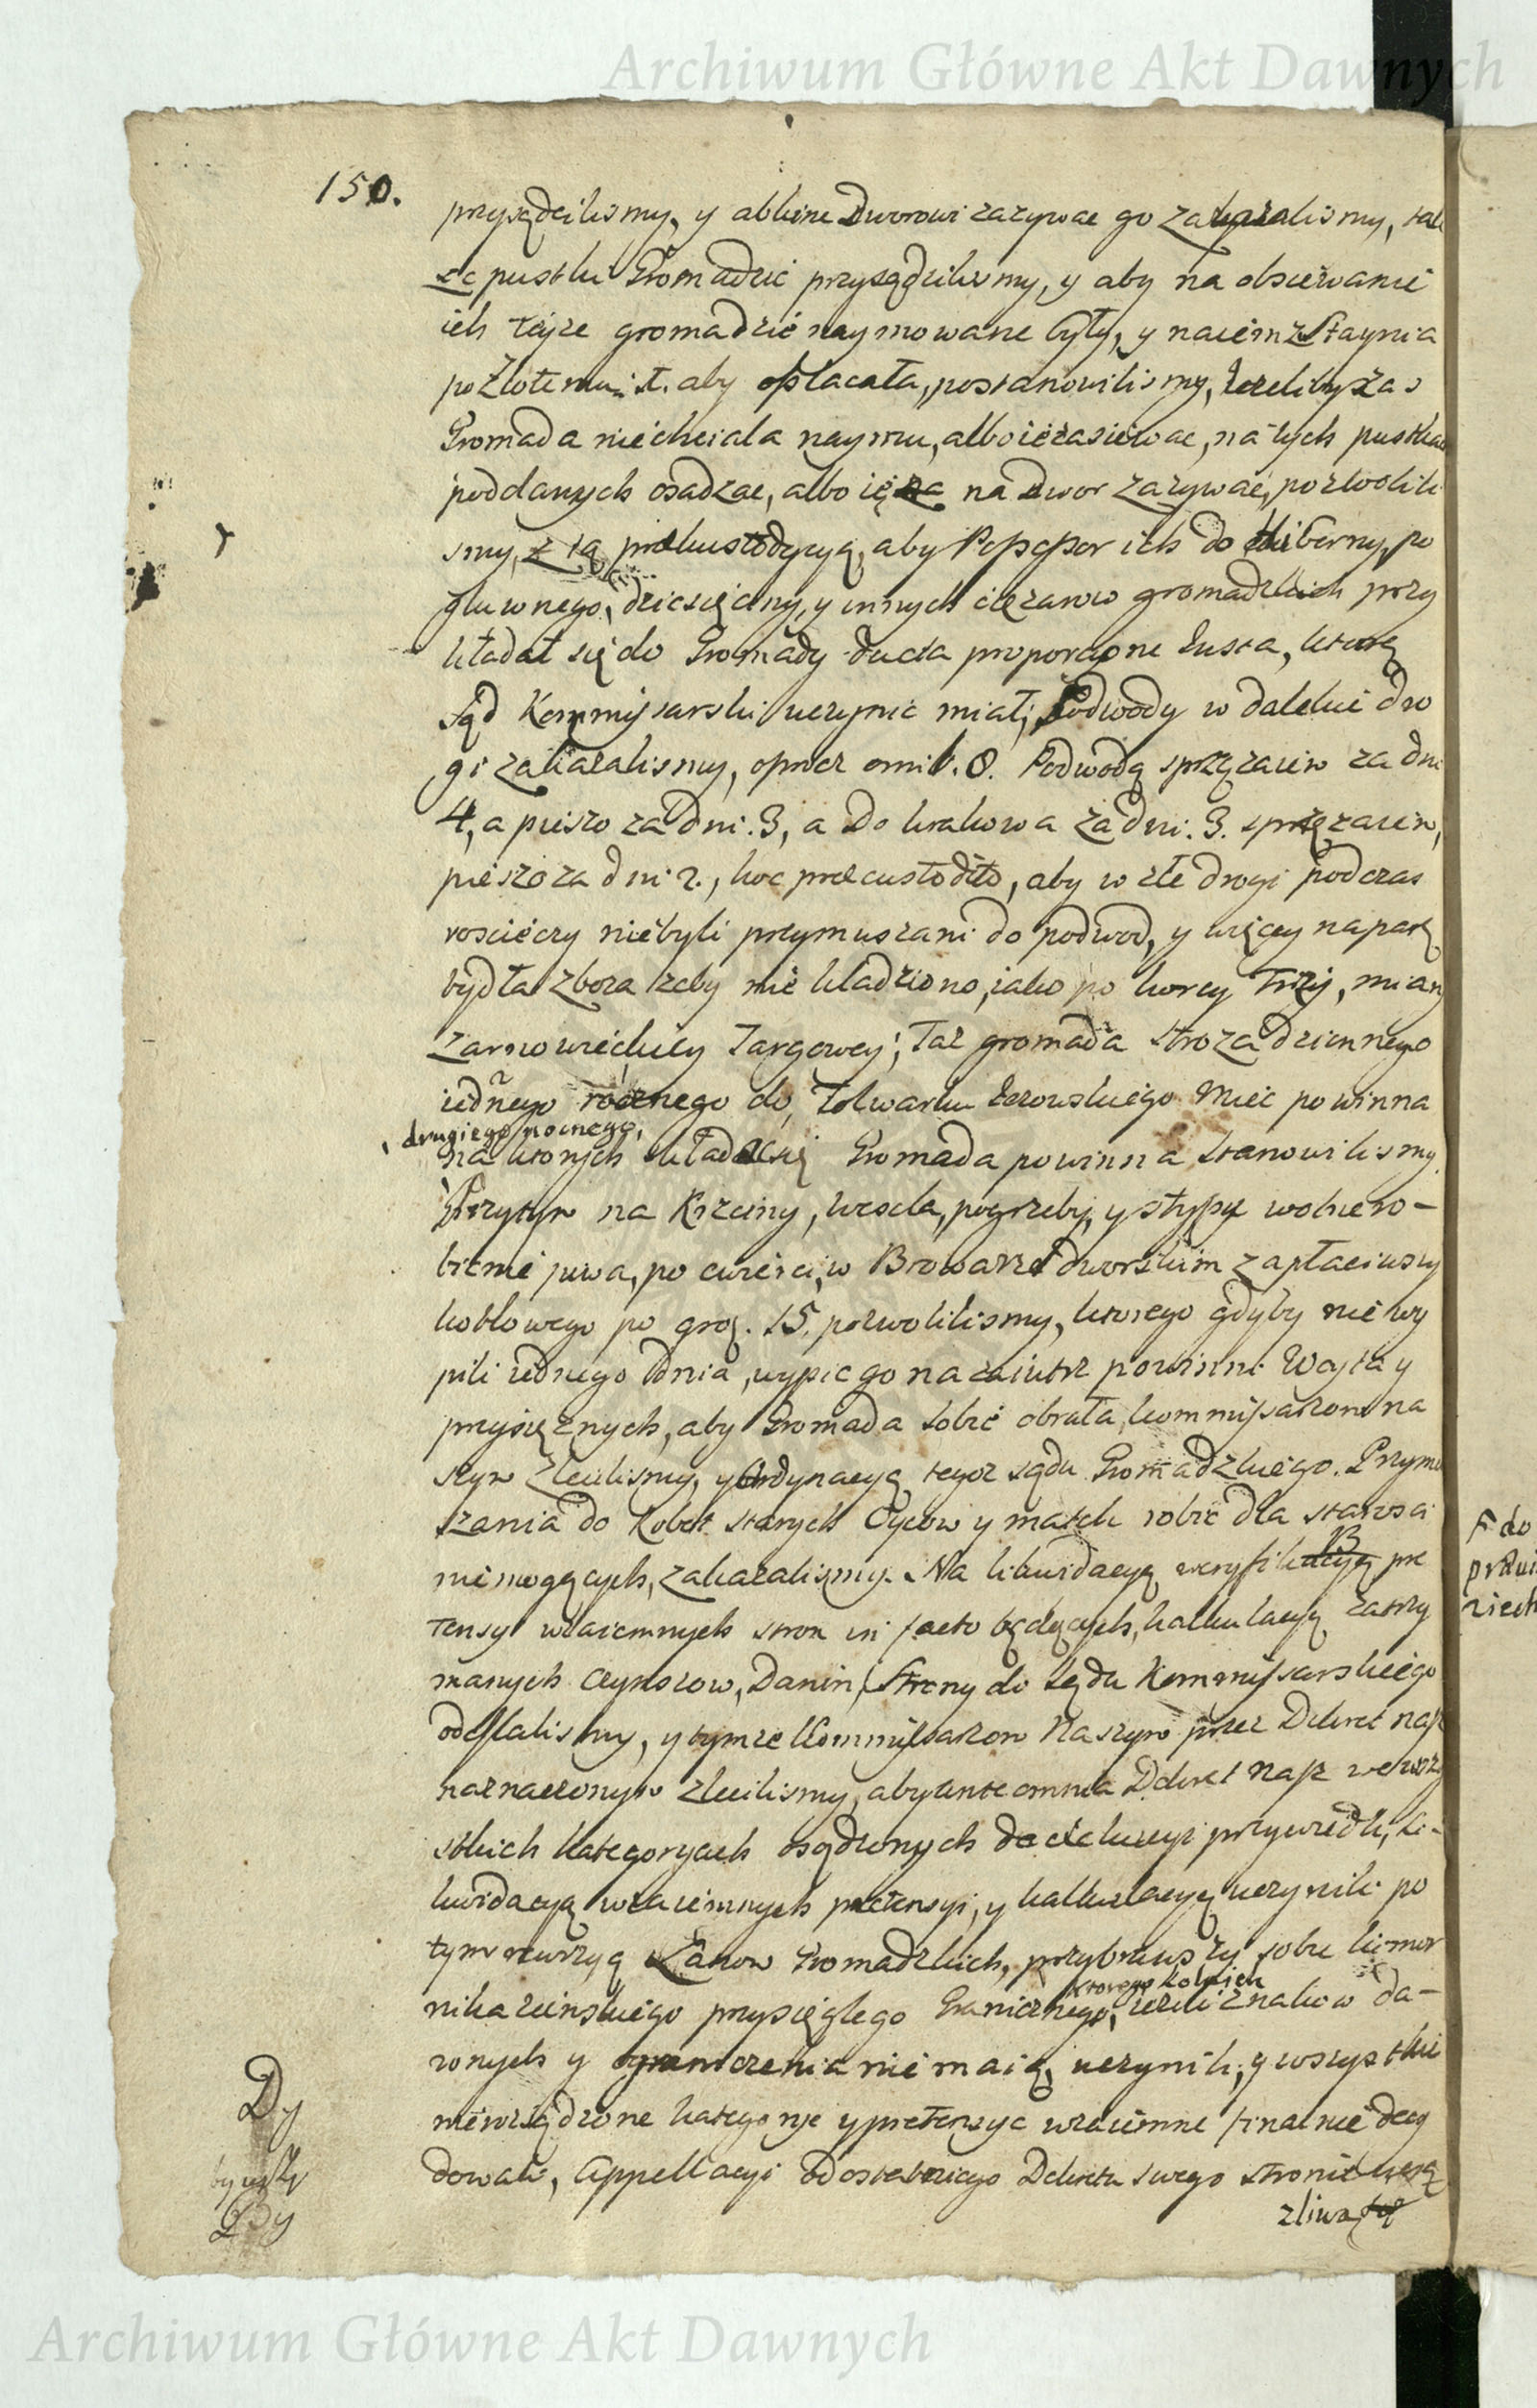 Archiwum Główne Akt Dawnych
150.
przysądzilismy, y abline Dworowi zazywac go zakazalismy, tak
ze pustki Gromadzie przysądzilismy, y aby na obsiewanie
ich teyze gromadzie naymowane były, y naiem z Staynia
po Złotemu i t. aby opłacała, postanowilismy, Jezeliby zas
Gromada niechciała naymu, albo ie zasiewac, na tych pustkach
poddanych osadzac, albo ię na dwor zazywać, pozwolili
smy, z tą prekustodycyą, aby Possessor ich do Hiberny, po
głuwnego, dziesięciny, y innych cięzarow gromadzkich przy
kładał się do Gromady ducta proporcyone Iusta, ktorą
Sąd Kommissarski uczynic miał; Podwody w dalekie dro
gi zakazalismy, oprocz mil. 8. Podwodą sprzęzaiem za dni
4, a pieszo za dni. 3, a Do krakowa za dni. 3. sprzęzaiem,
pieszo za dni 2., hoc praecustodito, aby w złe drogi podczas
roscieczy niebyli przymuszani do podwod, y więcey na parę
bydła zboza zeby nie kładziono, iako po korcy Trzy, miary
Zarnowieckiey Targowey; Taz gromada stroza dziennego
iednego rocznego do Folwarku Jezowskiego Miec powinna
, drugiego nocnego,
na ktorych składac się Gromada powinna stanowilismy.
Przytym na Krzciny, wesela, pogrzeby, y stypy wolne ro-
bienie piwa, po cwierci, w Browarze dworskim zapłaciwszy
kotłowego po grosz. 15. pozwolilismy, ktorego gdyby nie wy
pili iednego dnia, wypic go nazaiutrz powinni Woyta y
przysięznych, aby Gromada sobie obrała, kommissarzom na
szym zlecilismy, y Ordynacyą tegoz sądu Gromadzkiego. Przymu
szania do Robot starych Oycow y matek robic dla starosci
niemogących, zakazalismy. Na likwidacyą weryfikacyą pre
tensyi wzaiemnych stron in facto będących, kalkulacyą zatrzy
manych czynszow, Danin, Strony do Sądu Kommissarskiego
odesłalismy, y tymze Kommissarzom Naszym przez Dekret nasz
naznaczonym zlecilismy, aby ante omnia Dekret nasz we wszy
stkich kategoryach osądzonych do exekucyi przywiedli, Li-
kwidacyą wzaiemnych pretensyi, y kalkulacyą uczynili po
tym rewizyą Łanow Gromadzkich, przybrawszy sobie komor
nika ziemskiego przysięgłego Granicznego, iezeli znakow da-
ktorego kolwiek
wnych y ograniczenia nie maią, uczynili, y wszystkie
nierozsądzone kategorye y pretensye wzaiemne finalnie decy
dowali, Appellacyi od ostatniego Dekretu swego stronie uszą
zliwa
F do
prawi
ziech
Dy
bywszy
Dy
Archiwum Główne Akt Dawnych